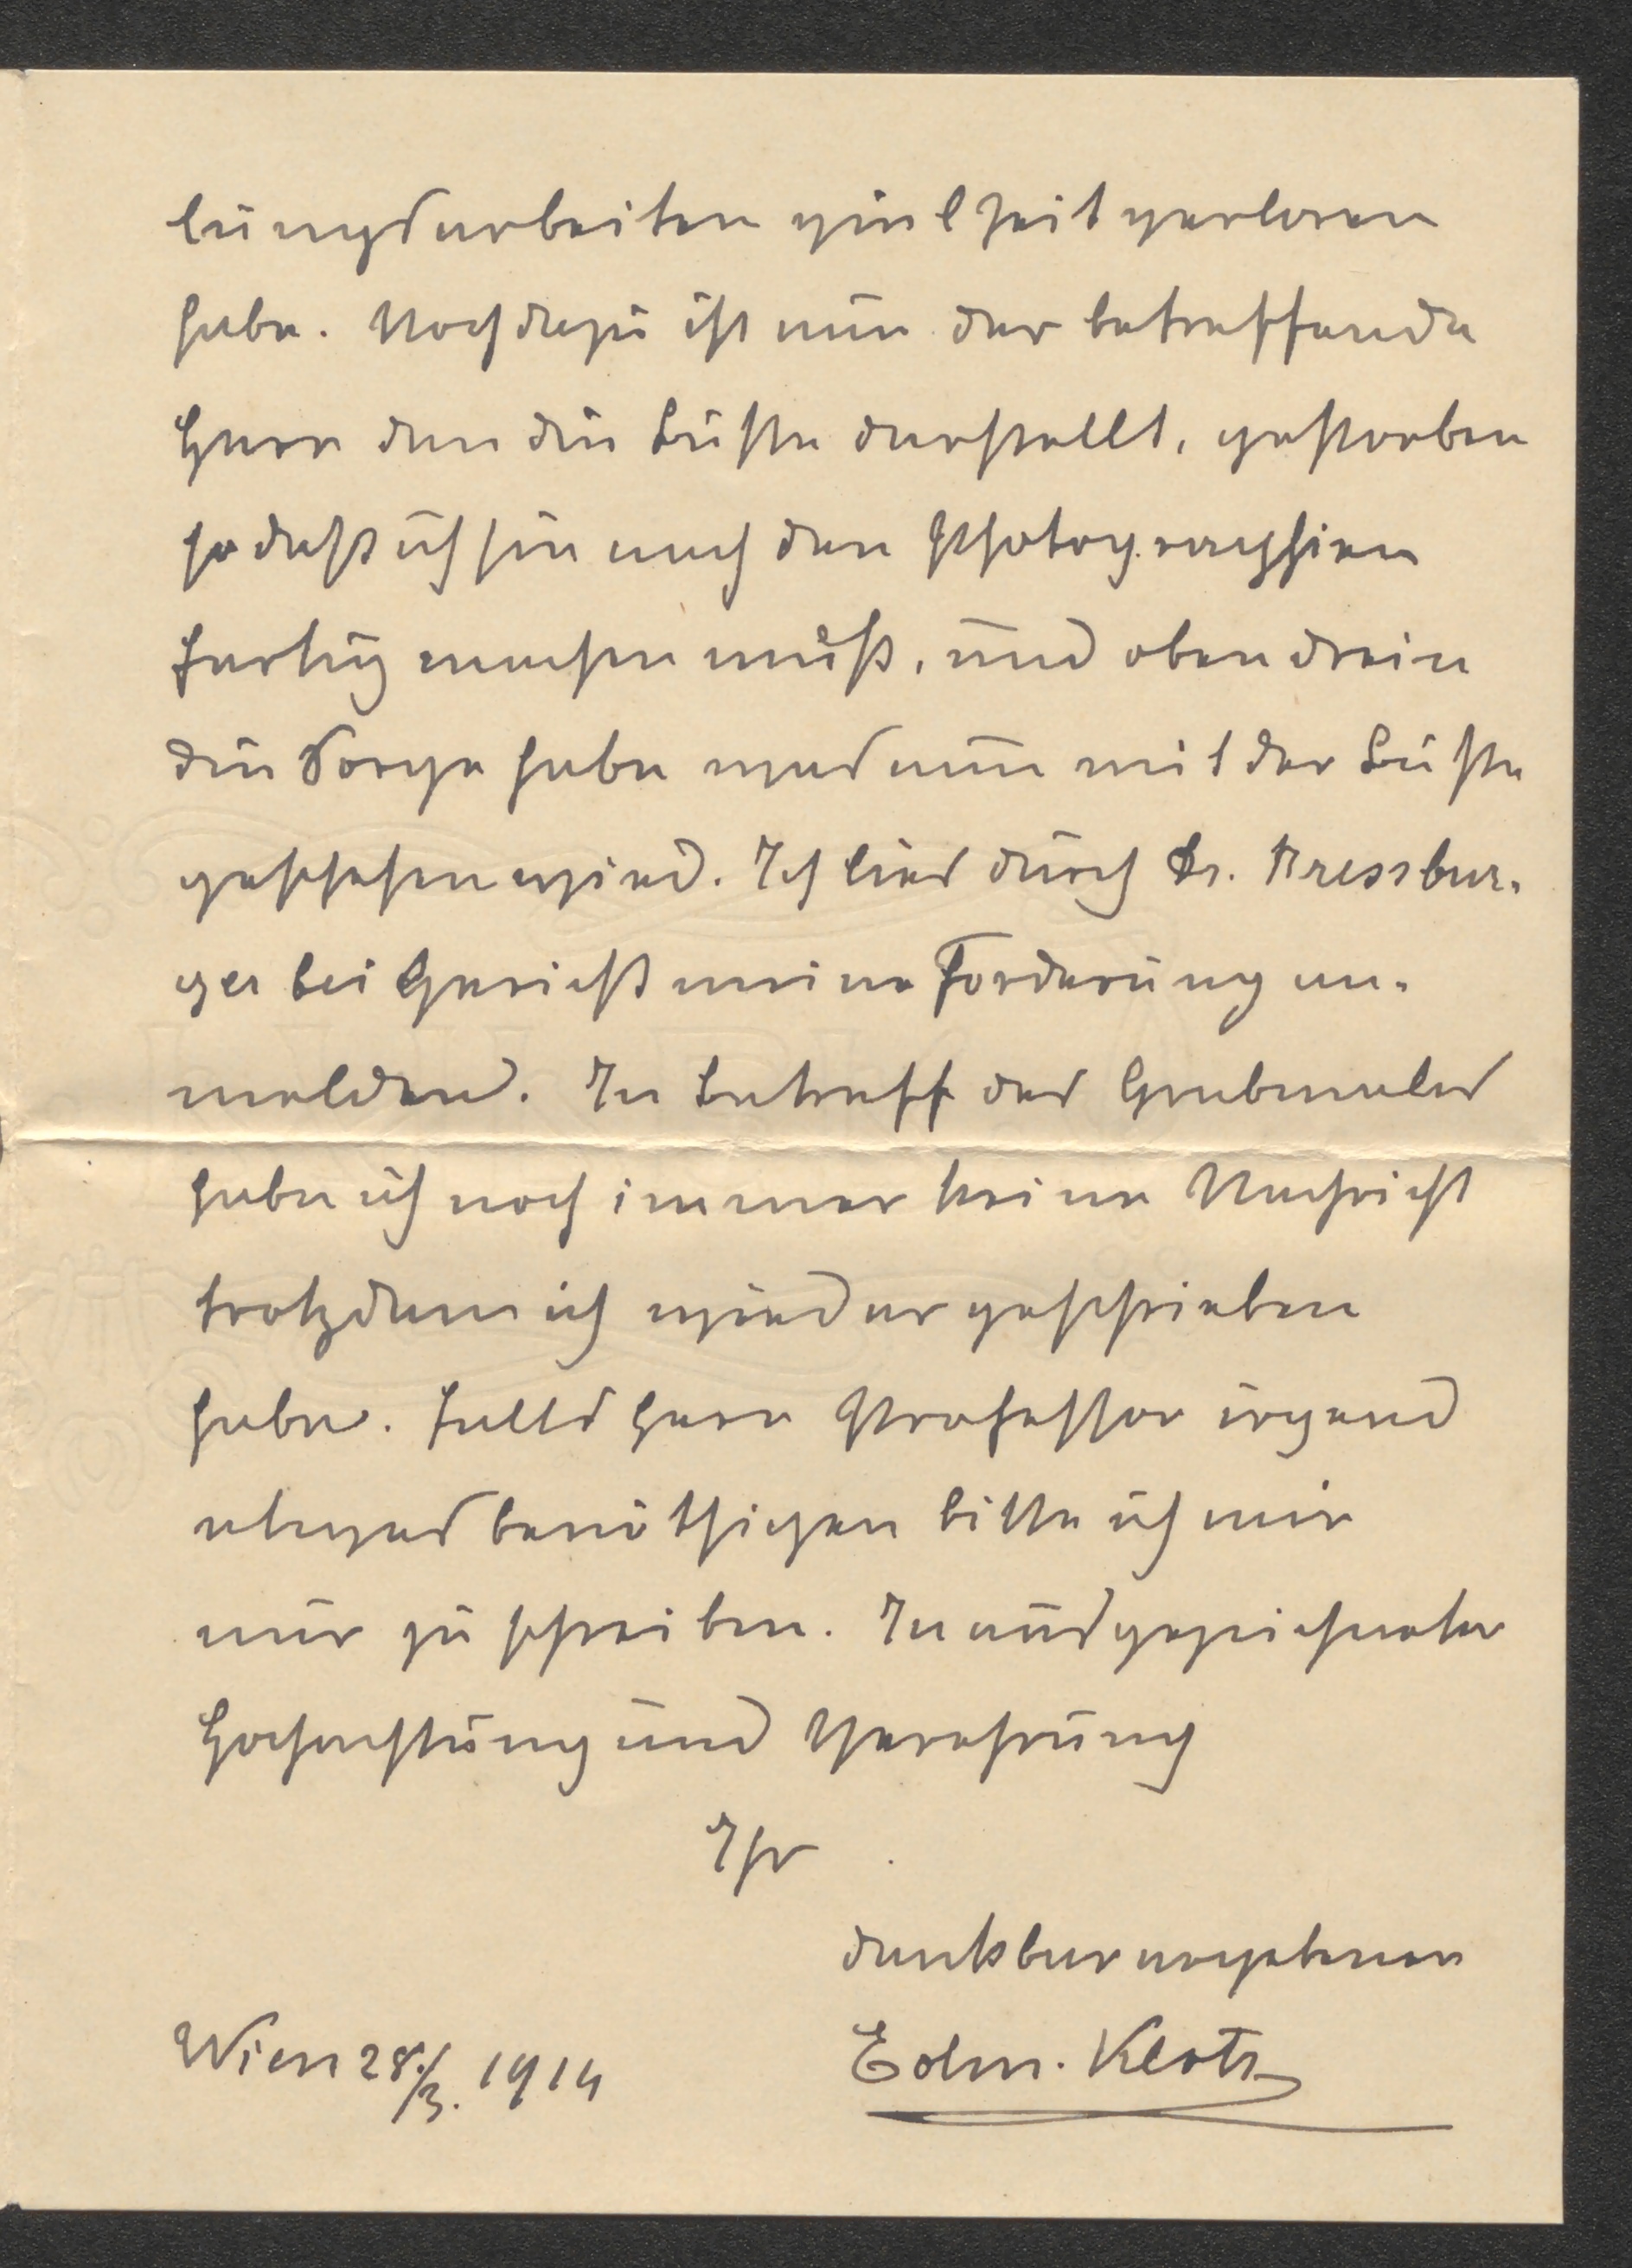 lungsarbeiten viel Zeit verloren
habe. Noch dazu ist nun der betreffende
Herr den die Büste darstellt, gestorben
so daß ich sie nach den Photographien
fertig machen muß, und obendrein
die Sorge habe was nun mit der Büste
geschehen wird. Ich ließ durch Dr. Pressbur-
ger bei Gericht meine Forderung an-
melden. In Betreff des Grabmales
habe ich noch immer keine Nachricht
trotzdem ich wieder geschrieben
habe. Falls Herr Professor irgend
etwas benöthigen bitte ich mir
nur zu schreiben. In ausgezeichneter
Hochachtung und Verehrung
Ihr
dankbar ergebener
Wien 28./3. 1914
Edm. Klotz